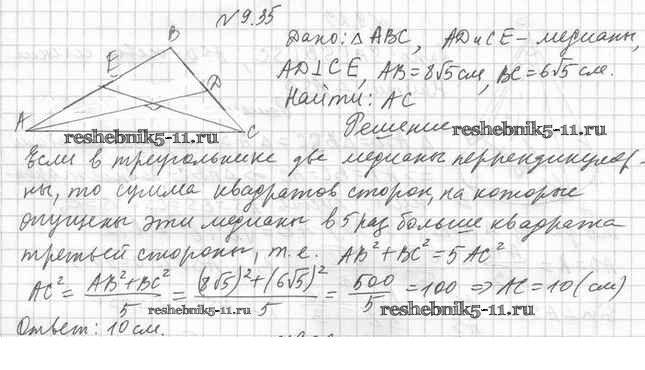 № 9.35
Дано: △ ABC, AD и CE - медианы,
AD⊥CE, AB = 8√5 см, BC = 6√5 см.
Найти: AC
Решение
B
E
D
A
C
reshebnik5-11.ru
reshebnik5-11.ru
Если в треугольнике две медианы перпендикуляр-
ны, то сумма квадратов сторон, на которые
опущены эти медианы в 5 раз больше квадрата
третьей стороны, т.е. AB² + BC² = 5AC²
AC² = (AB² + BC²)/5 = ((8√5)² + (6√5)²)/5 = 500/5 = 100 ⇒ AC = 10 (см)
reshebnik5-11.ru
reshebnik5-11.ru
Ответ: 10 см.